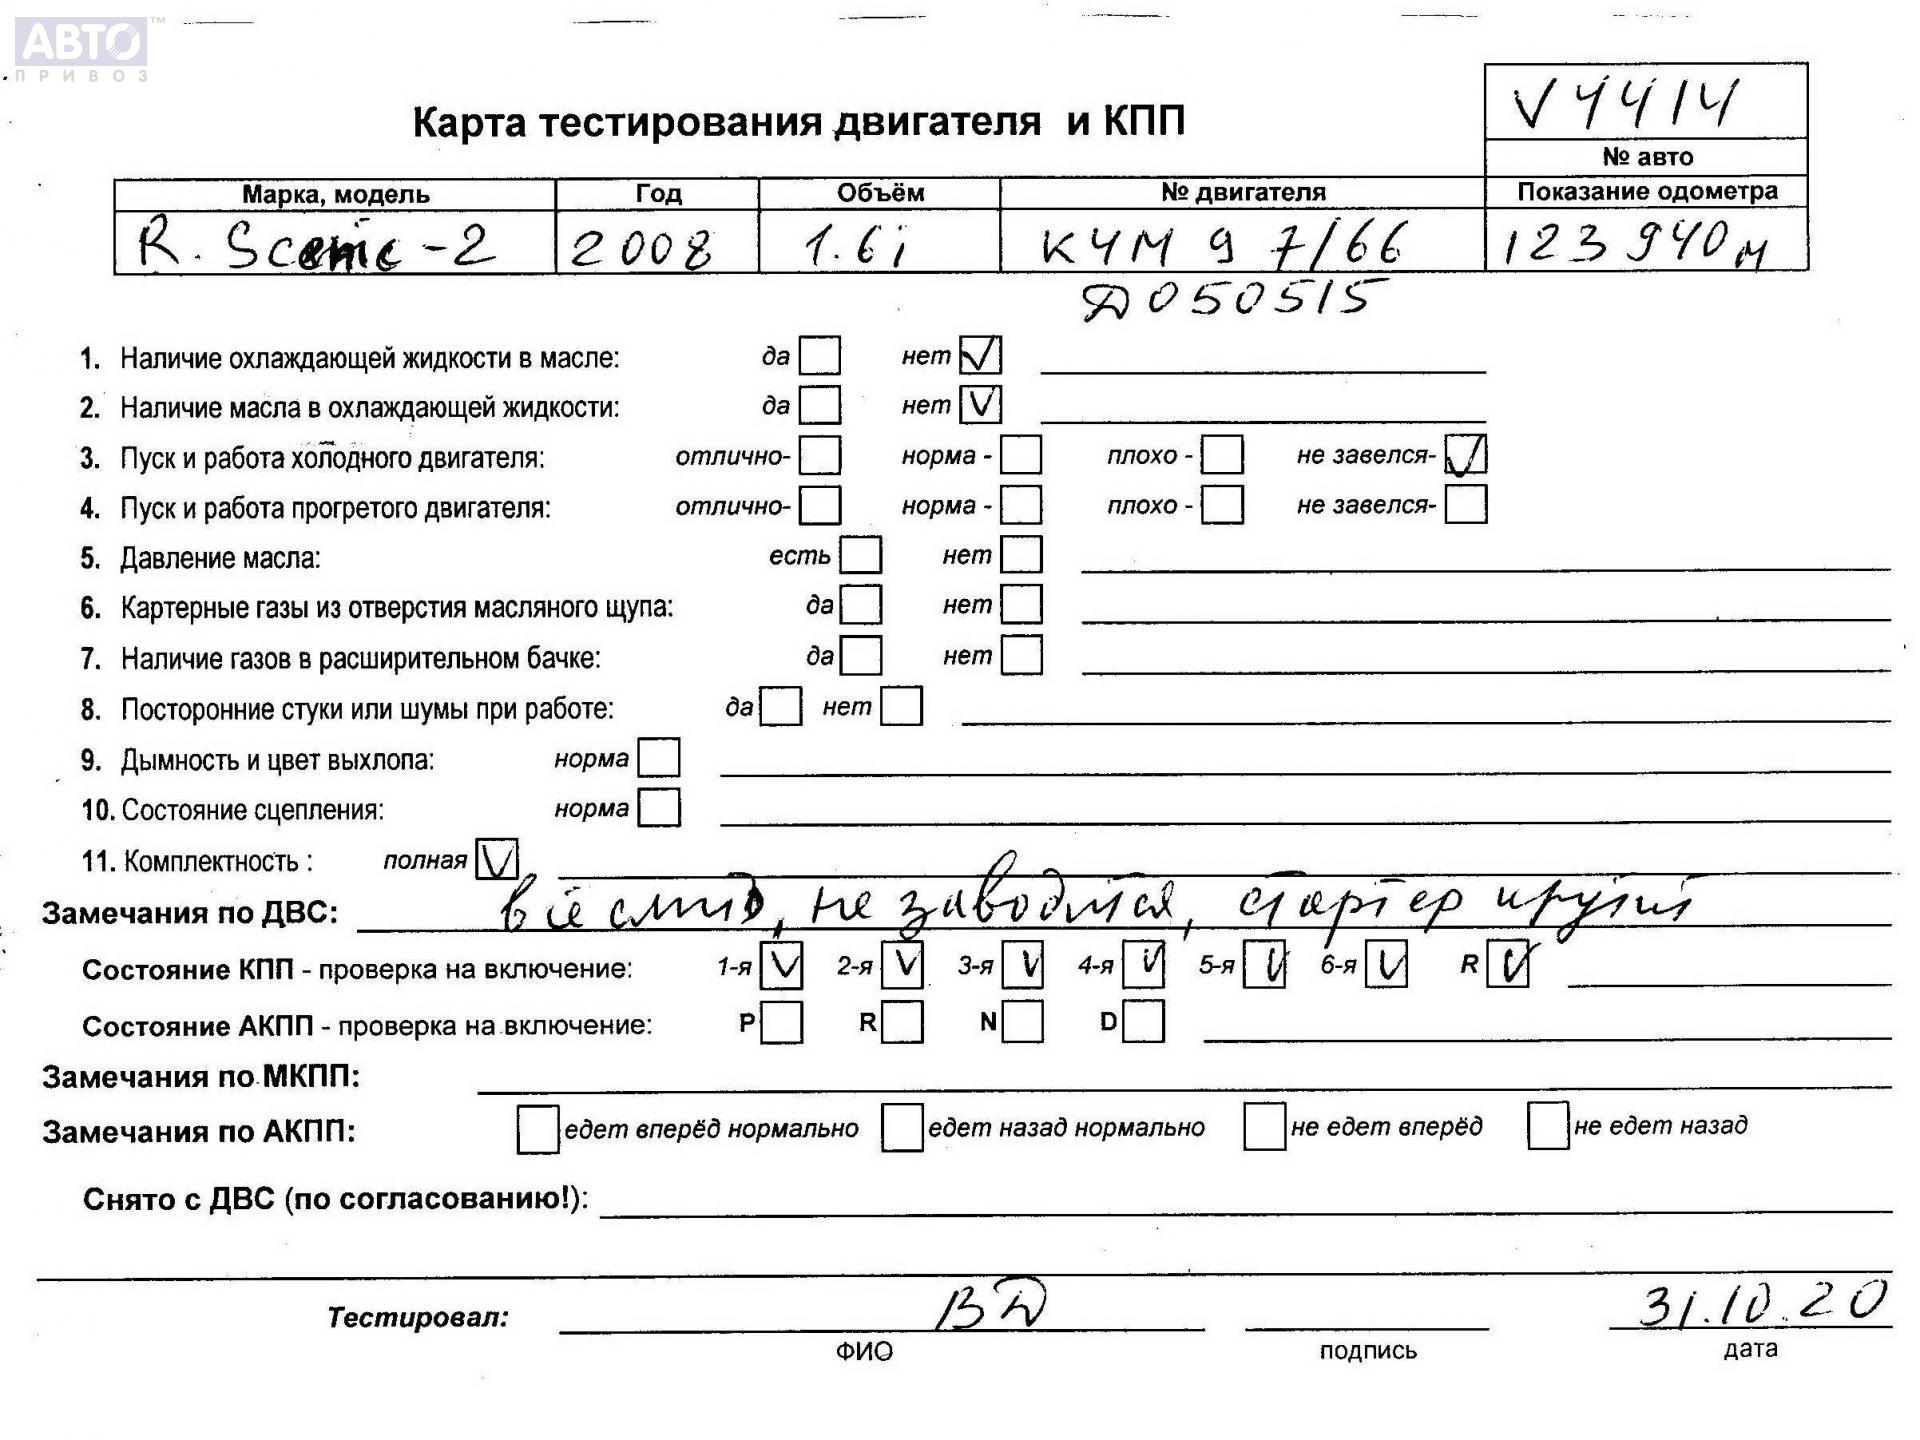 АВТО™
ПРИВОЗ
V4414
Карта тестирования двигателя и КПП
№ авто
Марка, модель Год Объём № двигателя Показание одометра
R. Scenic-2 2008 1.6i K4M 9 7/66 123 940 м
Д050515
1. Наличие охлаждающей жидкости в масле: да нет V
2. Наличие масла в охлаждающей жидкости: да нет V
3. Пуск и работа холодного двигателя: отлично- норма - плохо - не завелся- V
4. Пуск и работа прогретого двигателя: отлично- норма - плохо - не завелся-
5. Давление масла: есть нет
6. Картерные газы из отверстия масляного щупа: да нет
7. Наличие газов в расширительном бачке: да нет
8. Посторонние стуки или шумы при работе: да нет
9. Дымность и цвет выхлопа: норма
10. Состояние сцепления: норма
11. Комплектность : полная V
Замечания по ДВС: не заводится, стартер крутит
Состояние КПП - проверка на включение: 1-я V 2-я V 3-я V 4-я V 5-я V 6-я V R V
Состояние АКПП - проверка на включение: P R N D
Замечания по МКПП:
Замечания по АКПП: едет вперёд нормально едет назад нормально не едет вперёд не едет назад
Снято с ДВС (по согласованию!):
Тестировал: ВД 31.10.20
ФИО подпись дата